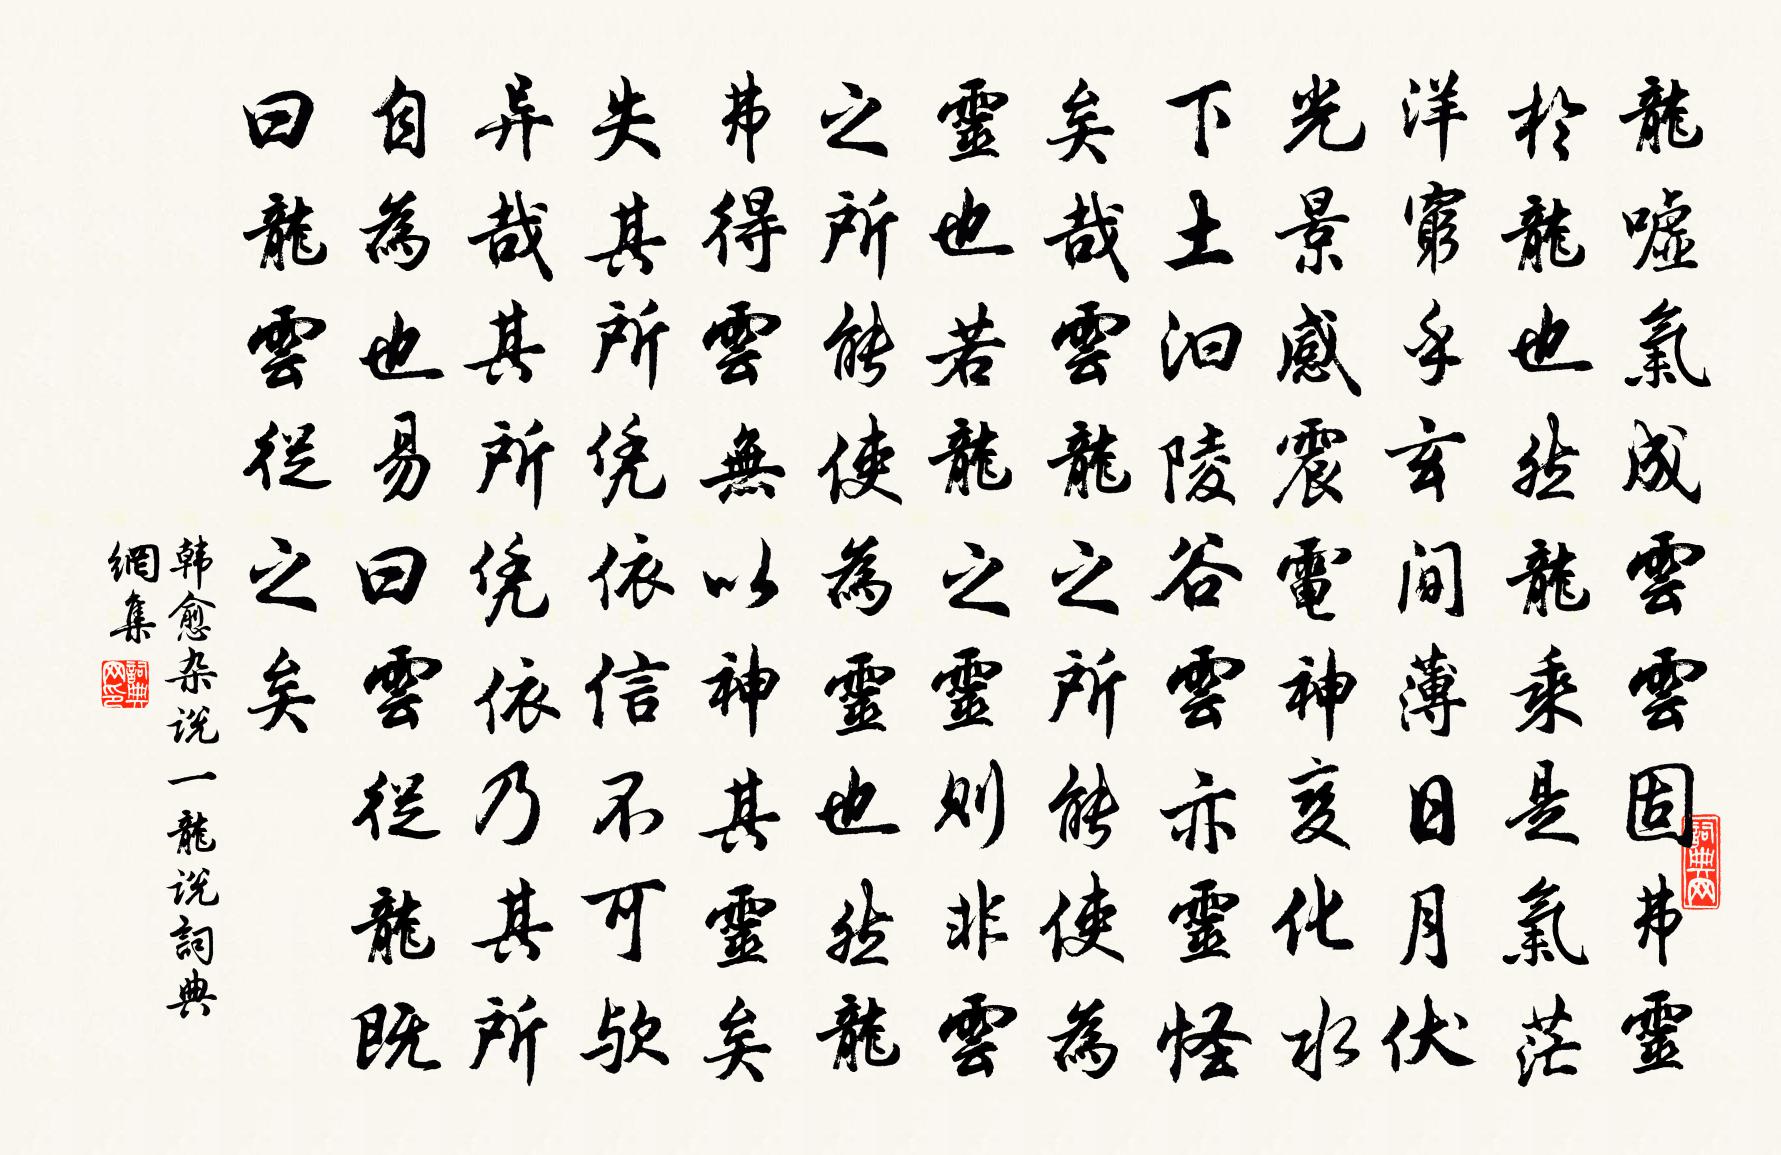 龍噓氣成雲雲固弗靈
於龍也然龍乘是氣茫
洋窮乎玄間薄日月伏
光景感震電神変化水
下土汩陵谷雲亦靈怪
矣哉雲龍之所能使為
靈也若龍之靈則非雲
之所能使為靈也然龍
弗得雲無以神其靈矣
失其所凭依信不可欤
异哉其所凭依乃其所
自為也易曰雲從龍既
曰龍雲從之矣
韩愈杂说一龍说詞典
網集
詞典网
詞典网印